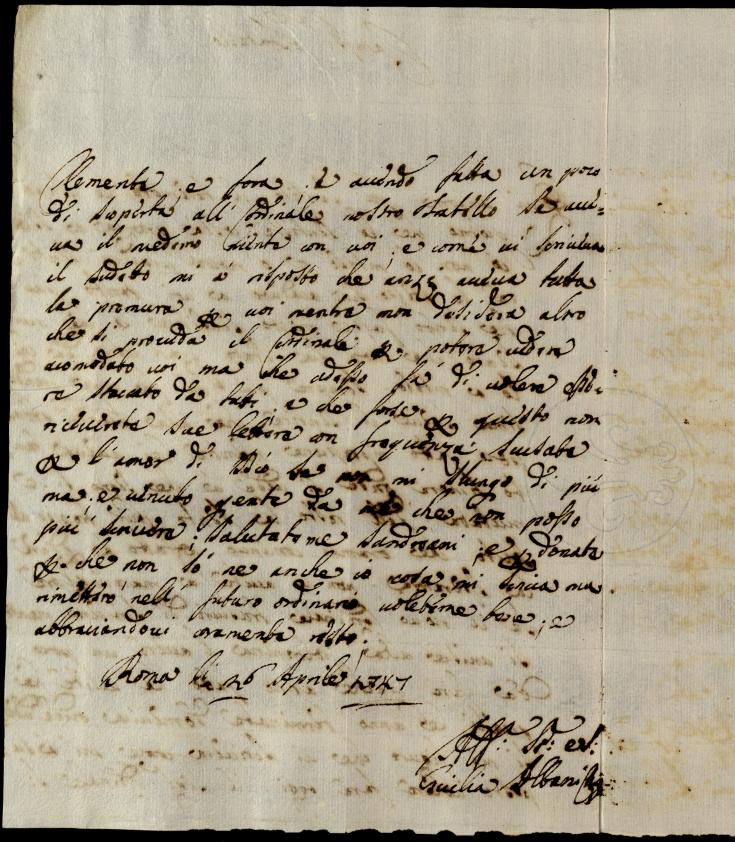 Clemente e fora è auendo fatta un poco
di scoperta all' Cardinale nostro fratello se aue=
ua il medemo scritto con voi, e come ui scriueua
il sudetto mi à risposto che anzi aueua tutta
la premura p. voi mentre non desidera altro
che si proceda il Cardinale p. potere uedere
acomodato voi ma che adesso fà di uolere esse=
re staccato da tutti, e che forse p. questo non
riceuerete sue lettere con frequenza, scusate
p. l'amor di Dio se non mi slungo di più
ma è venuto gente da me che non posso
più scriuere, salutateme Sandreani, e p.donate
p. che non sò ne anche io cosa mi scriua ma
rimetterò nell' futuro ordinario uoleteme bene, e
abbracciandoui caramente resto.
Roma li 26 Aprile 1747
Aff.
Cecilia Albani